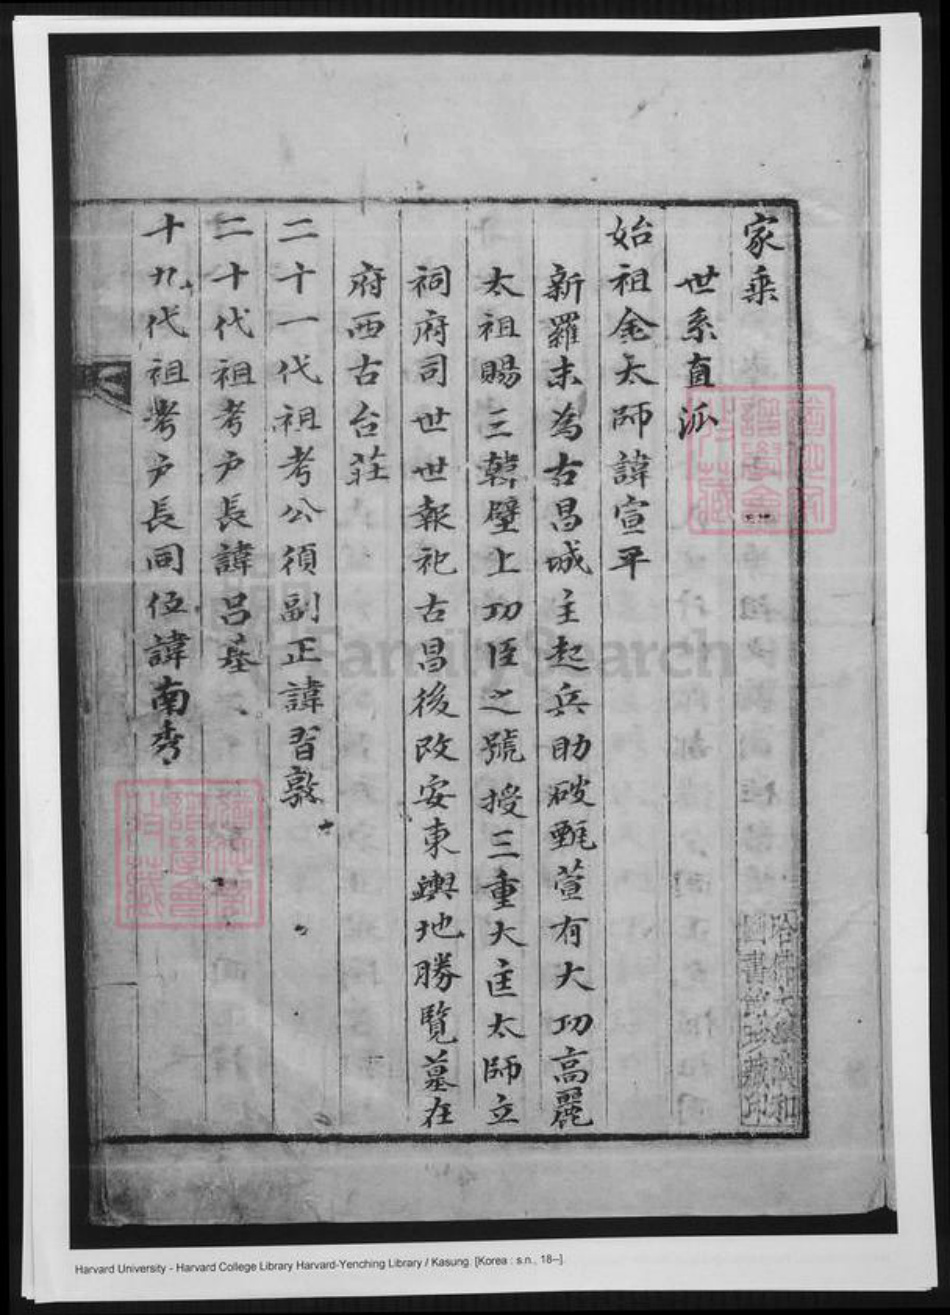 家乘
世系直派
始祖金太師諱宣平
新羅末為古昌城主起兵助破甄萱有大功高麗
太祖賜三韓壁上功臣之號授三重大匡太師立
祠府司世世報祀古昌後改安東輿地勝覽墓在
府西古台莊
二十一代祖考公須副正諱習敦
二十代祖考戶長諱呂基
十九代祖考戶長同位諱南秀
哈佛大學漢和
圖書館珍藏印
FamilySearch
Harvard University - Harvard College Library Harvard-Yenching Library / Kasung. [Korea : s.n., 18--].